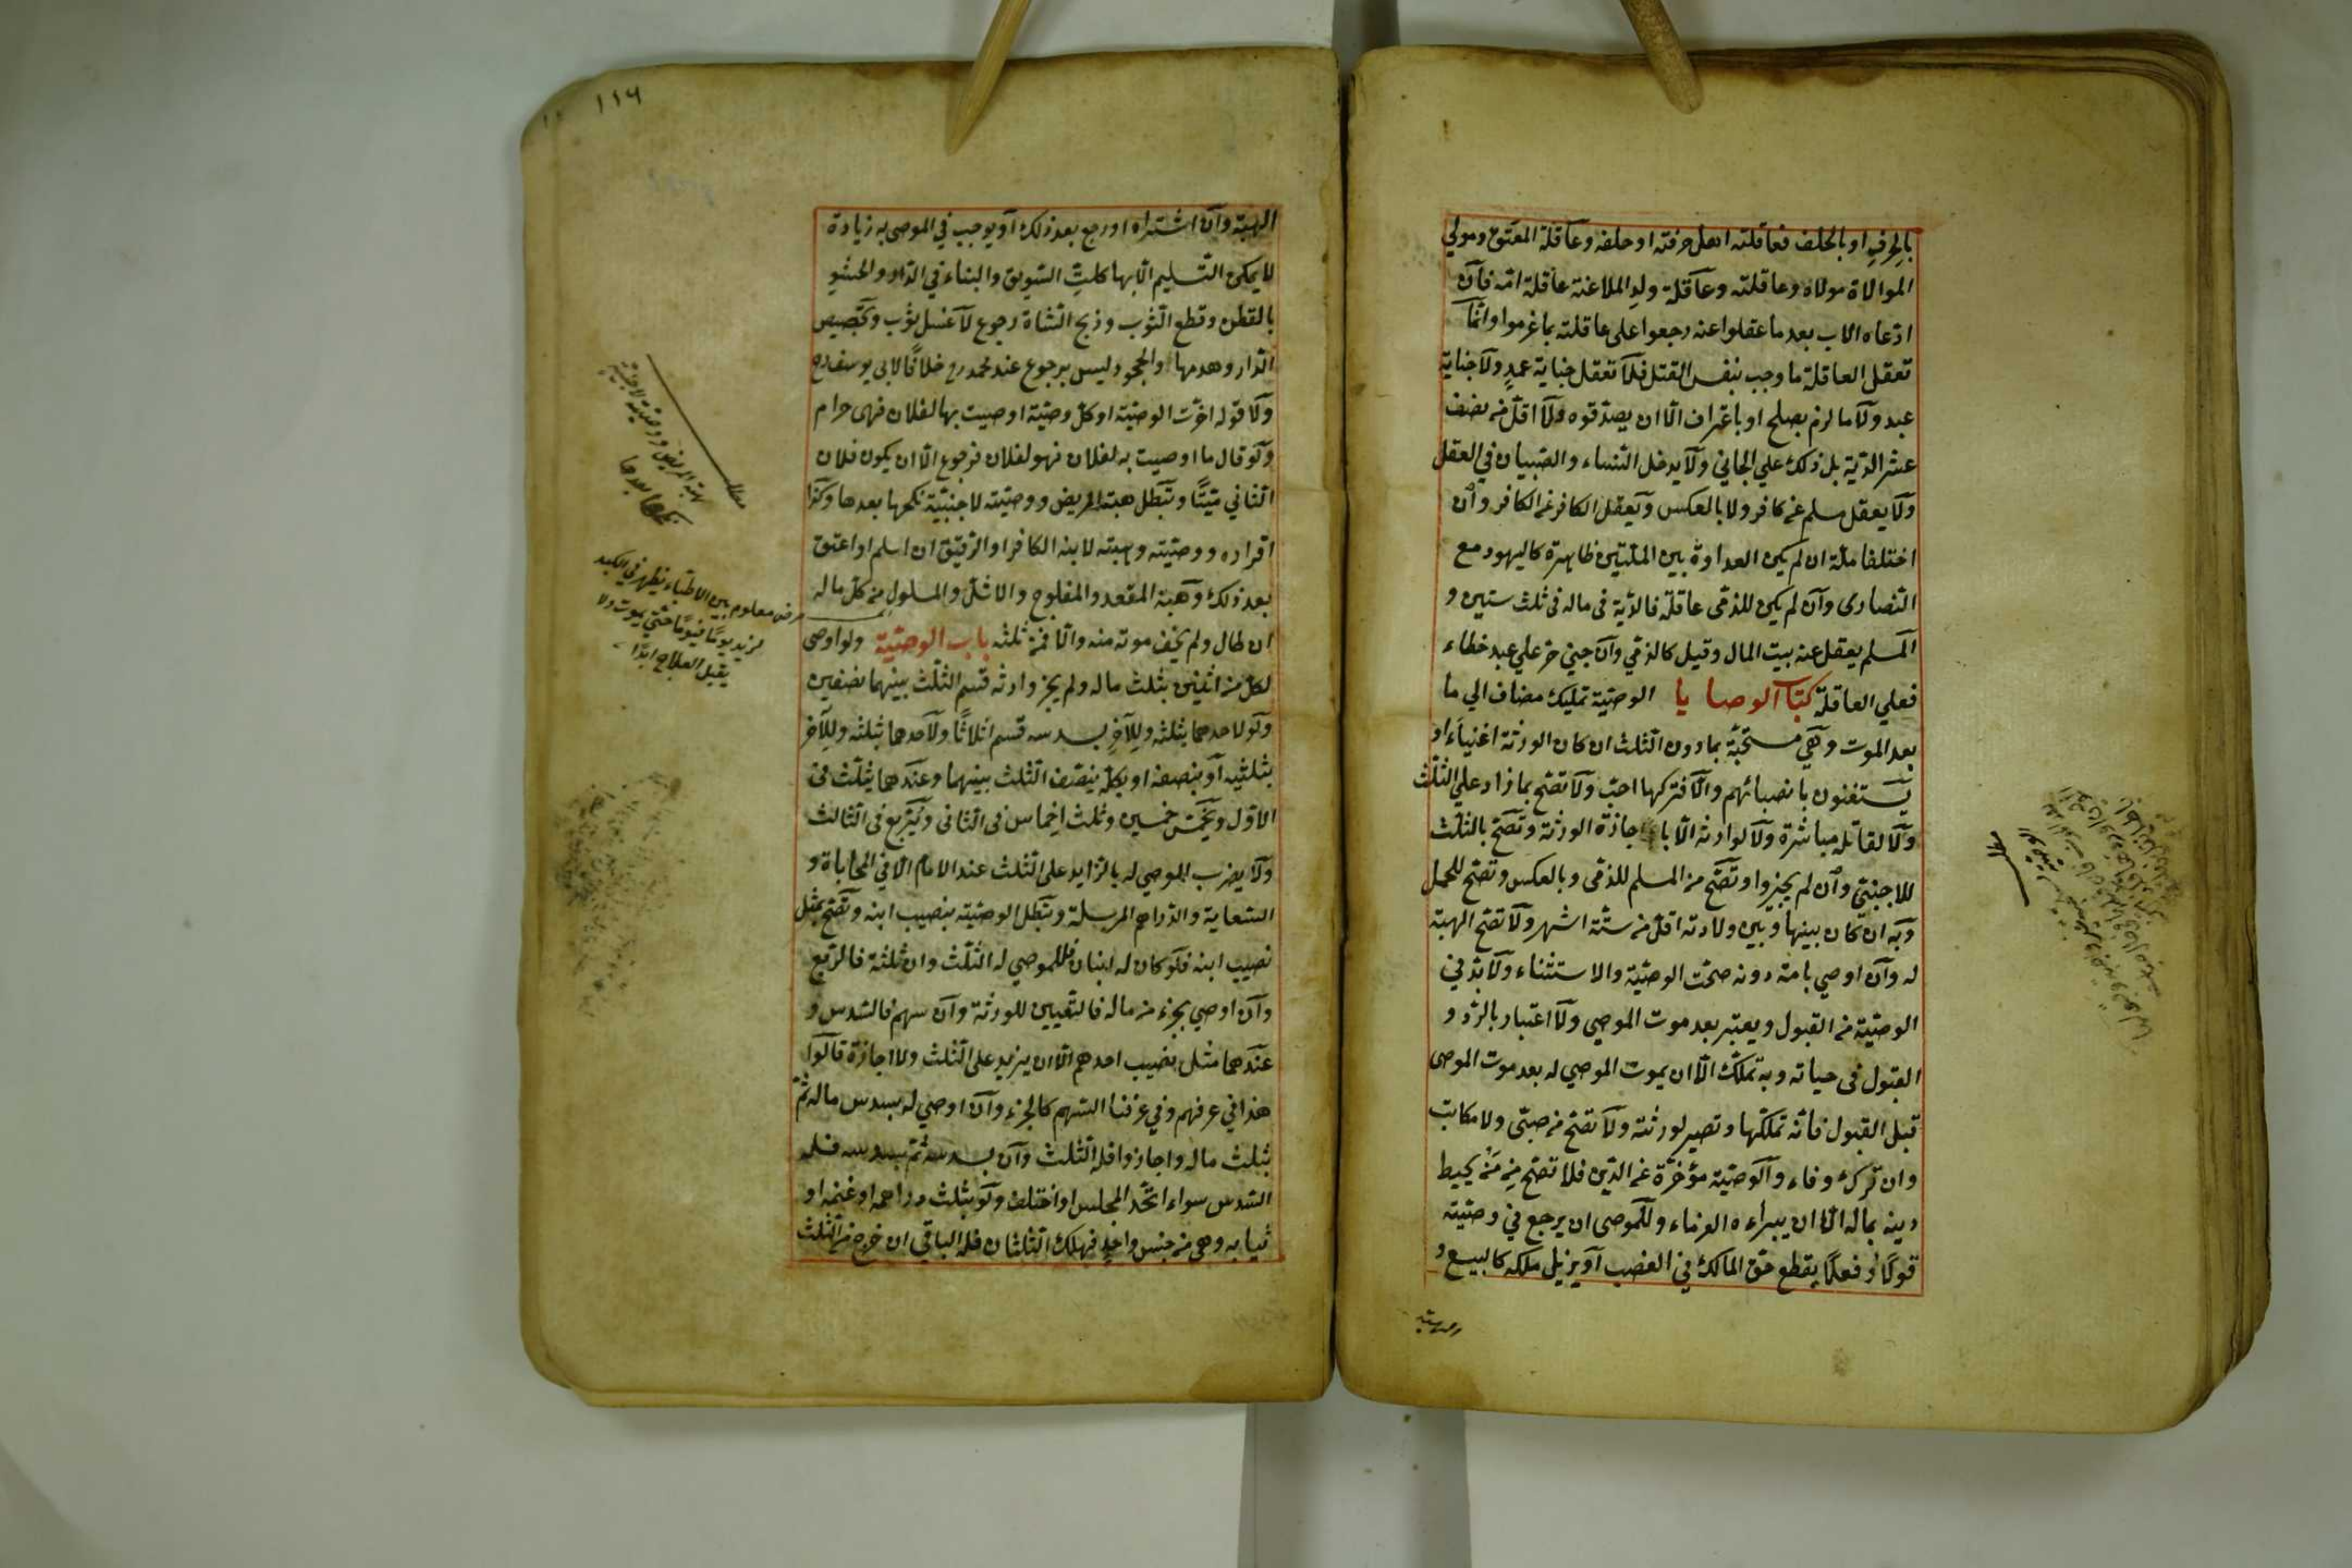 بالحرف او بالحلف فعاقلته اهل حرفته او حلفه وعاقلة المعتق ومولي
الموالاة مولاه وعاقلته وعاقلة ولد الملاعنة عاقلة امه فان
ادعاه الاب بعد ما عقلوا عنه رجعوا على عاقلته بما غرموا وانما
تعقل العاقلة ما وجب بنفس القتل فلا تعقل جناية عمد ولا جناية
عبد ولا ما لزم بصلح او باعتراف الا ان يصدقوه ولا اقل من نصف
عشر الدية بل ذلك علي الجاني ولا يدخل النساء والصبيان في العقل
ولا يعقل مسلم عن كافر ولا بالعكس ويعقل الكافر عن الكافر وان
اختلفا ملة ان لم يكن العداوة بين الملتين ظاهرة كاليهود مع
النصارى وان لم يكن للذمى عاقلة فالدية فى ماله فى ثلث سنين و
المسلم يعقل عنه بيت المال وقيل كالذمي وان جني حر علي عبد خطاء
فعلي العاقلة كتاب الوصايا الوصية تمليك مضاف الي ما
بعد الموت وهي مستحبة بما دون الثلث ان كان الورثة اغنياء او
يستغنون بانصبائهم والا فتركها احب ولا تصح بما زاد علي الثلث
ولا لقاتله مباشرة ولا لوارثه الا باجازة الورثة وتصح بالثلث
للاجنبي وان لم يجيزوا وتصح من المسلم للذمى وبالعكس وتصح للحمل
وبه ان كان بينها وبين ولادته اقل من ستة اشهر ولا تصح الهبة
له وان اوصي بامة دونه صحت الوصية والاستثناء ولا بد في
الوصية من القبول ويعتبر بعد موت الموصي ولا اعتبار بالرد و
القبول فى حياته وبه تملك الا ان يموت الموصي له بعد موت الموصى
قبل القبول فانه تملكها وتصير لورثته ولا تصح من صبى ولا مكاتب
وان ترك وفاء والوصية مؤخرة عن الدين فلا تصح من من يحيط
دينه بماله الا ان يبراءه الغرماء وللموصى ان يرجع في وصيته
قولا او فعلا يقطع حق المالك في الغصب او يزيل ملكه كالبيع و
١١٦
الهبة وان اشتراه او رجع بعد ذلك او يوجب في الموصى به زيادة
لا يمكن التسليم الا بها كلت السويق والبناء في الدار والحشو
بالقطن وقطع الثوب وذبح الشاة رجوع لا غسل ثوب وتجصيص
الدار وهدمها والجحود ليس برجوع عند محمد رح خلافا لابى يوسف رح
ولا قوله اخرت الوصية او كل وصية اوصيت بها لفلان فهى حرام
ولو قال ما اوصيت به لفلان فهو لفلان فرجوع الا ان يكون فلان
الثاني ميتا وتبطل هبة المريض ووصيته لاجنبية نكحها بعدها وكذا
اقراره ووصيته وهبته لابنه الكافر او الرقيق ان اسلم او اعتق
بعد ذلك وهبة المقعد والمفلوج والاشل والمسلول من كل ماله
ان طال ولم يخف موته منه والا فمن ثلثه باب الوصية ولو اوصى
لكل من اثنين بثلث ماله ولم يجز وارثه قسم الثلث بينهما نصفين
ولو لاحدهما بثلثه وللآخر بسدسه قسم اثلاثا ولاحدهما بثلثه وللآخر
بثلثيه او بنصفه او بكله ينصف الثلث بينهما وعندهما يثلث فى
الاول ويخمس خمسين وثلث اخماس فى الثانى ويربع فى الثالث
ولا يضرب الموصي له بالزايد على الثلث عند الامام الا في المحاباة و
السعاية والدراهم المرسلة وتبطل الوصية بنصيب ابنه وتصح بمثل
نصيب ابنه فلو كان له ابنان فللموصي له الثلث وان ثلثة فالربع
وان اوصي بجزء من ماله فالتعيين للورثة وان سهم فالسدس و
عندهما مثل نصيب احدهم الا ان يزيد على الثلث ولا اجازة قالوا
هذا في عرفهم وفي عرفنا السهم كالجزء وان اوصي له بسدس ماله ثم
بثلث ماله واجازوا فله الثلث وان بسدسه ثم بسدسه فله
السدس سواء اتحد المجلس او اختلف ولو بثلث دراهمه او غنمه او
ثيابه وهى من جنس واحد فهلك الثلثان فله الباقي ان خرج من الثلث
مطلب
هبة المريض ووصيته لاجنبية
نكحها بعدها
مرض معلوم بين الاطباء يظهر في الكبد
يزيد يوما فيوما حتى يموت ولا
يقبل العلاج ابدا